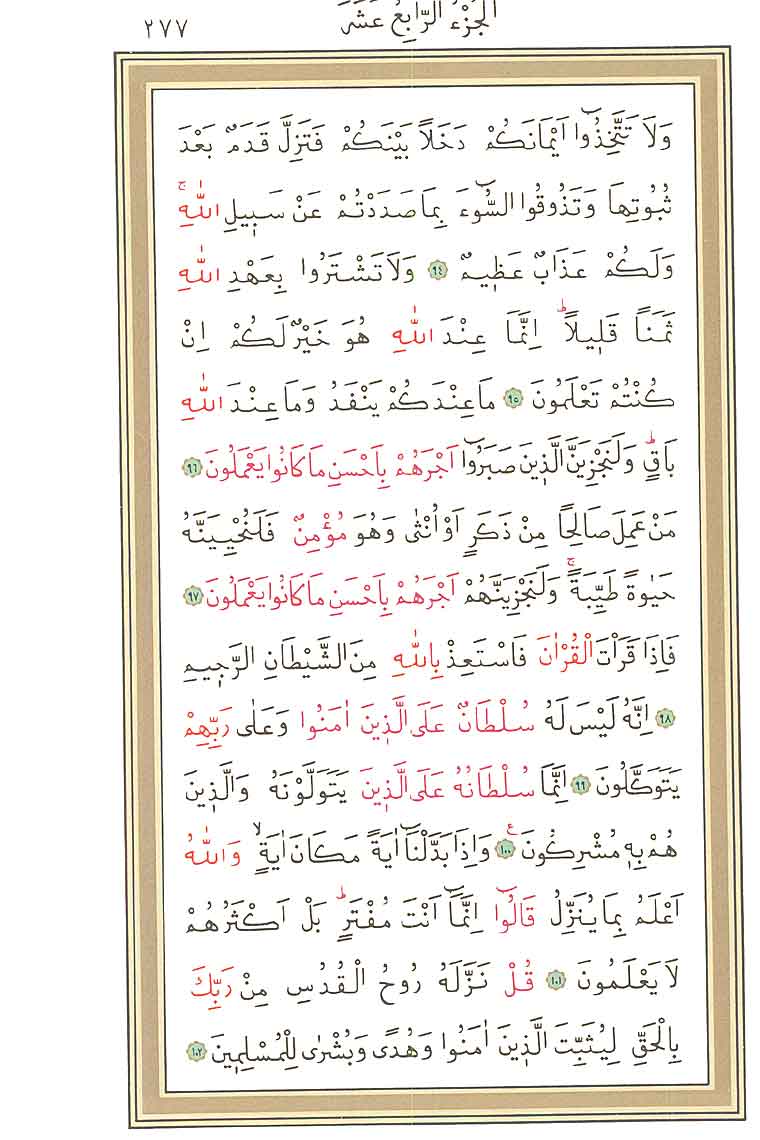 الجُزْءُ الرَّابِعُ عَشَرَ ٢٧٧
وَلَا تَتَّخِذُٓوا اَيْمَانَكُمْ دَخَلاً بَيْنَكُمْ فَتَزِلَّ قَدَمٌ بَعْدَ
ثُبُوتِهَا وَتَذُوقُوا السُّٓوءَ بِمَا صَدَدْتُمْ عَنْ سَبٖيلِ اللّٰهِۚ
وَلَكُمْ عَذَابٌ عَظٖيمٌ ﴿٩٤﴾ وَلَا تَشْتَرُوا بِعَهْدِ اللّٰهِ
ثَمَناً قَلٖيلاًؕ اِنَّمَا عِنْدَ اللّٰهِ هُوَ خَيْرٌ لَكُمْ اِنْ
كُنْتُمْ تَعْلَمُونَ ﴿٩٥﴾ مَا عِنْدَكُمْ يَنْفَدُ وَمَا عِنْدَ اللّٰهِ
بَاقٍؕ وَلَنَجْزِيَنَّ الَّذٖينَ صَبَرُٓوا اَجْرَهُمْ بِاَحْسَنِ مَا كَانُوا يَعْمَلُونَ ﴿٩٦﴾
مَنْ عَمِلَ صَالِحاً مِنْ ذَكَرٍ اَوْ اُنْثٰى وَهُوَ مُؤْمِنٌ فَلَنُحْيِيَنَّهُ
حَيٰوةً طَيِّبَةًۚ وَلَنَجْزِيَنَّهُمْ اَجْرَهُمْ بِاَحْسَنِ مَا كَانُوا يَعْمَلُونَ ﴿٩٧﴾
فَاِذَا قَرَاْتَ الْقُرْاٰنَ فَاسْتَعِذْ بِاللّٰهِ مِنَ الشَّيْطَانِ الرَّجٖيمِ
﴿٩٨﴾ اِنَّهُ لَيْسَ لَهُ سُلْطَانٌ عَلَى الَّذٖينَ اٰمَنُوا وَعَلٰى رَبِّهِمْ
يَتَوَكَّلُونَ ﴿٩٩﴾ اِنَّمَا سُلْطَانُهُ عَلَى الَّذٖينَ يَتَوَلَّوْنَهُ وَالَّذٖينَ
هُمْ بِهٖ مُشْرِكُونَ ﴿١٠٠﴾ وَاِذَا بَدَّلْنَٓا اٰيَةً مَكَانَ اٰيَةٍۙ وَاللّٰهُ
اَعْلَمُ بِمَا يُنَزِّلُ قَالُٓوا اِنَّمَٓا اَنْتَ مُفْتَرٍؕ بَلْ اَكْثَرُهُمْ
لَا يَعْلَمُونَ ﴿١٠١﴾ قُلْ نَزَّلَهُ رُوحُ الْقُدُسِ مِنْ رَبِّكَ
بِالْحَقِّ لِيُثَبِّتَ الَّذٖينَ اٰمَنُوا وَهُدًى وَبُشْرٰى لِلْمُسْلِمٖينَ ﴿١٠٢﴾